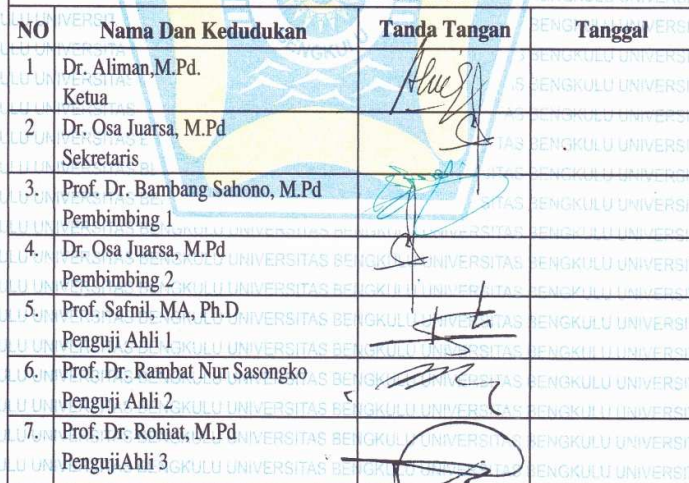 NO Nama Dan Kedudukan Tanda Tangan Tanggal
1 Dr. Aliman,M.Pd.
Ketua
2 Dr. Osa Juarsa, M.Pd
Sekretaris
3. Prof. Dr. Bambang Sahono, M.Pd
Pembimbing 1
4. Dr. Osa Juarsa, M.Pd
Pembimbing 2
5. Prof. Safnil, MA, Ph.D
Penguji Ahli 1
6. Prof. Dr. Rambat Nur Sasongko
Penguji Ahli 2
7. Prof. Dr. Rohiat, M.Pd
PengujiAhli 3